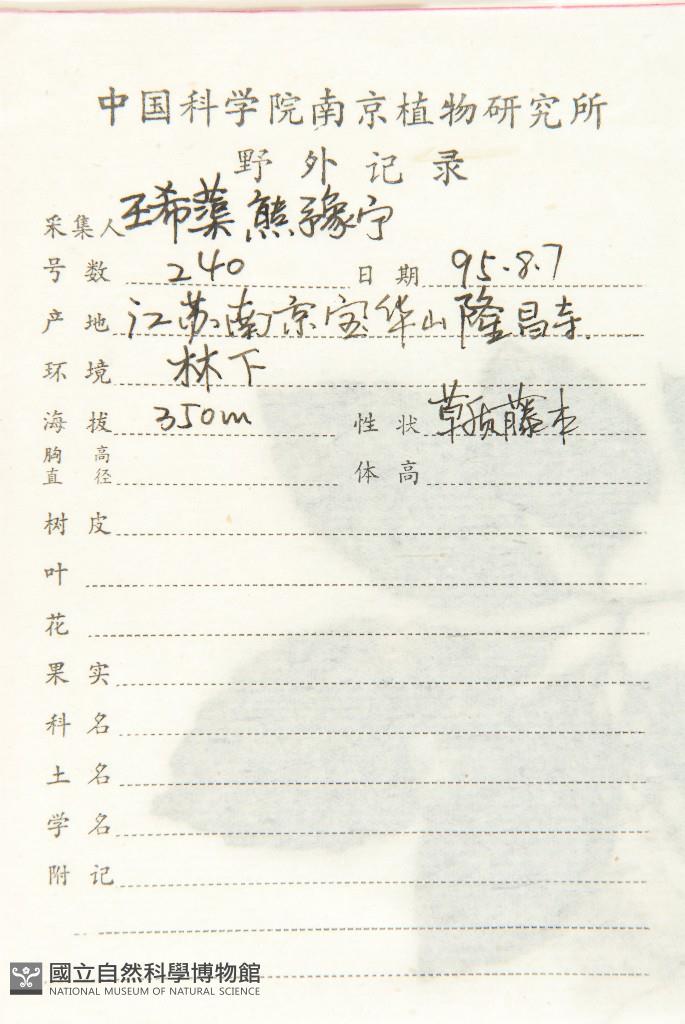 中国科学院南京植物研究所
野外记录
采集人 王希蕖 熊豫宁
号数 240 日期 95.8.7
产地 江苏南京宝华山隆昌寺.
环境 林下
海拔 350m 性状 草质藤本
胸高直径 体高
树皮
叶
花
果实
科名
土名
学名
附记
國立自然科學博物館
NATIONAL MUSEUM OF NATURAL SCIENCE